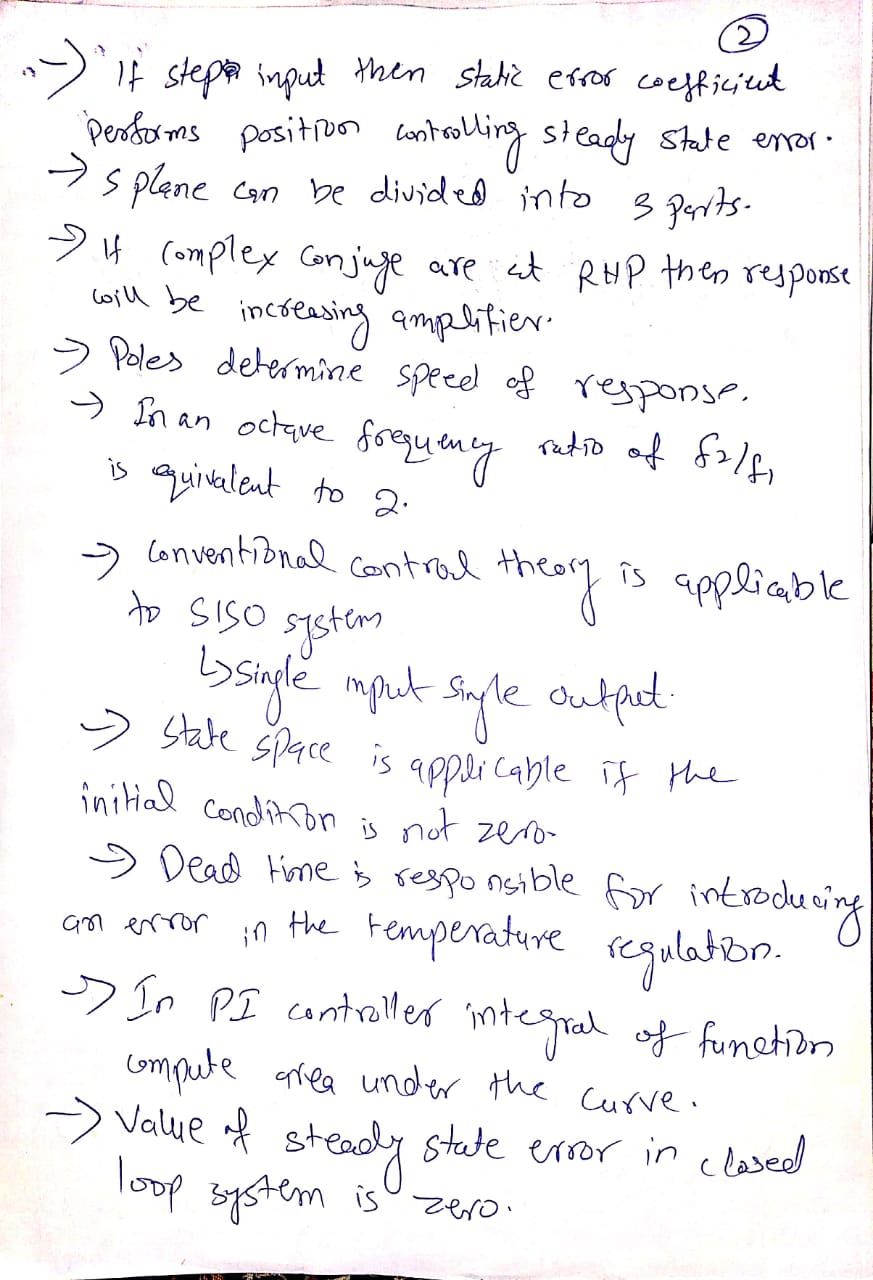 ②
→ If step input then static error coefficient
performs position controlling steady state error.
→ S plane can be divided into 3 parts.
→ If complex conjuge are at RHP then response
will be increasing amplifier.
→ Poles determine speed of response.
→ In an octave frequency ratio of f2/f1
is equivalent to 2.
→ Conventional control theory is applicable
to SISO system
↳ Single input single output.
→ State space is applicable if the
initial condition is not zero.
→ Dead time is responsible for introducing
an error in the temperature regulation.
→ In PI controller integral of function
compute area under the curve.
→ Value of steady state error in closed
loop system is zero.